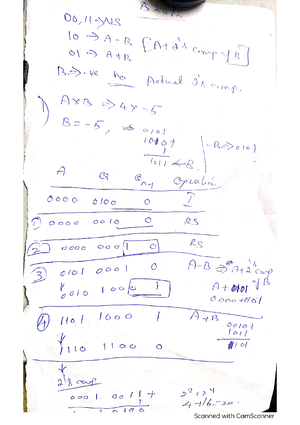 00, 11 → NS
10 → A-B [A+2's comp of B]
01 → A+B
B → -ve no Actual 2's comp.
1) A×B ⇒ 4 x -5
B = -5, ⇒ 0101
1010+
1
1011 ← B.
-B ⇒ 0101
A Q Qn-1 Operation
0000 0100 0 I
① 0000 0010 0 RS
② 0000 0001 0 RS
③ 0101 0001 0 A-B ⇒ A+2's comp of B
0010 1000 1 A+0101
0000+0101
④ 1101 1000 1 A+B 0010+
1011
1101
1110 1100 0
2's comp
0001 0011+
2²+2⁴
4+16=20
Scanned with CamScanner